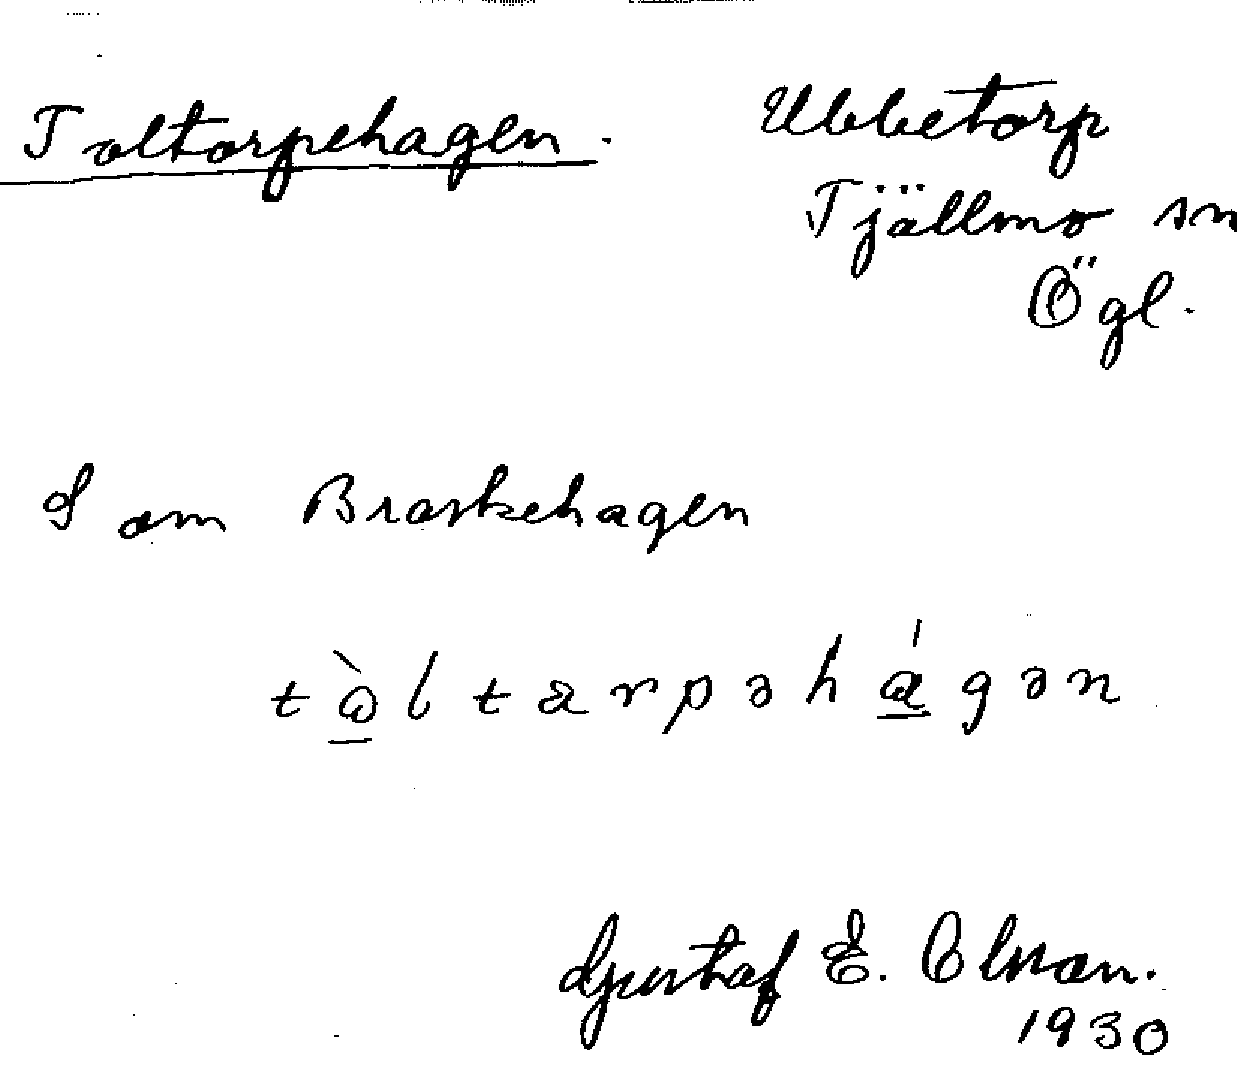 Toltorpehagen. Ubbetorp
Tjällmo sn
Ögl.
S om Braskehagen
Gustaf E. Olson.
1930